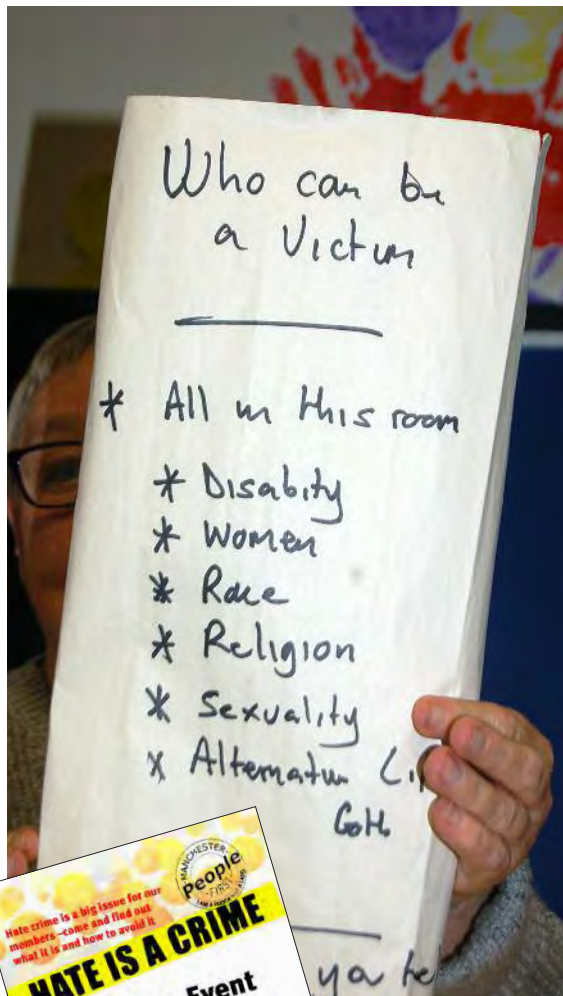 Who can be
a Victim
* All in this room
* Disabity
* Women
* Race
* Religion
* Sexuality
* Alternative
Goth
ya
MANCHESTER
People
FIRST
Hate crime is a big issue for our
members -come and find out
what it is and how to avoid it
HATE IS A CRIME
Event